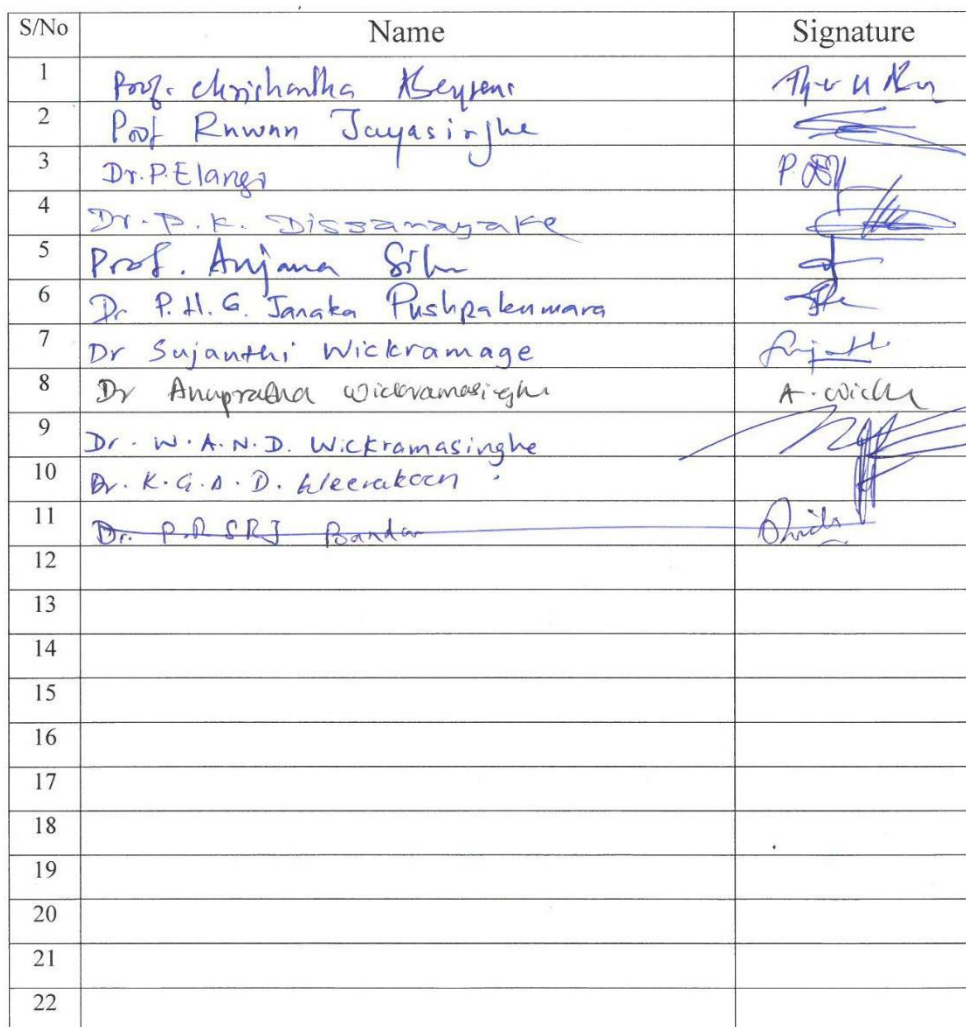 S/No Name Signature
1 Prof. Chrishantha Abeysena
2 Prof Ruwan Jayasinghe
3 Dr. P. Elango P.
4 Dr. P. K. Dissanayake
5 Prof. Anjana Silva
6 Dr P. H. G. Janaka Pushpakumara
7 Dr Sujanthi Wickramage Sujanthi
8 Dr Anupratha Wickramasinghe A. Wick
9 Dr. W. A. N. D. Wickramasinghe
10 Dr. K. G. A. D. Weerakoon
11 Dr. P.R SRJ Bandara
12
13
14
15
16
17
18
19
20
21
22